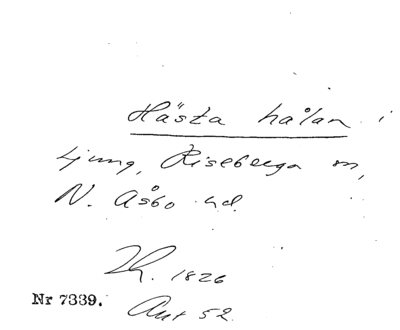 Hästa hålan i
Ljung, Riseberga sn,
N. Åsbo hd.
Th. 1826
Nr 7339.
Ant 52.